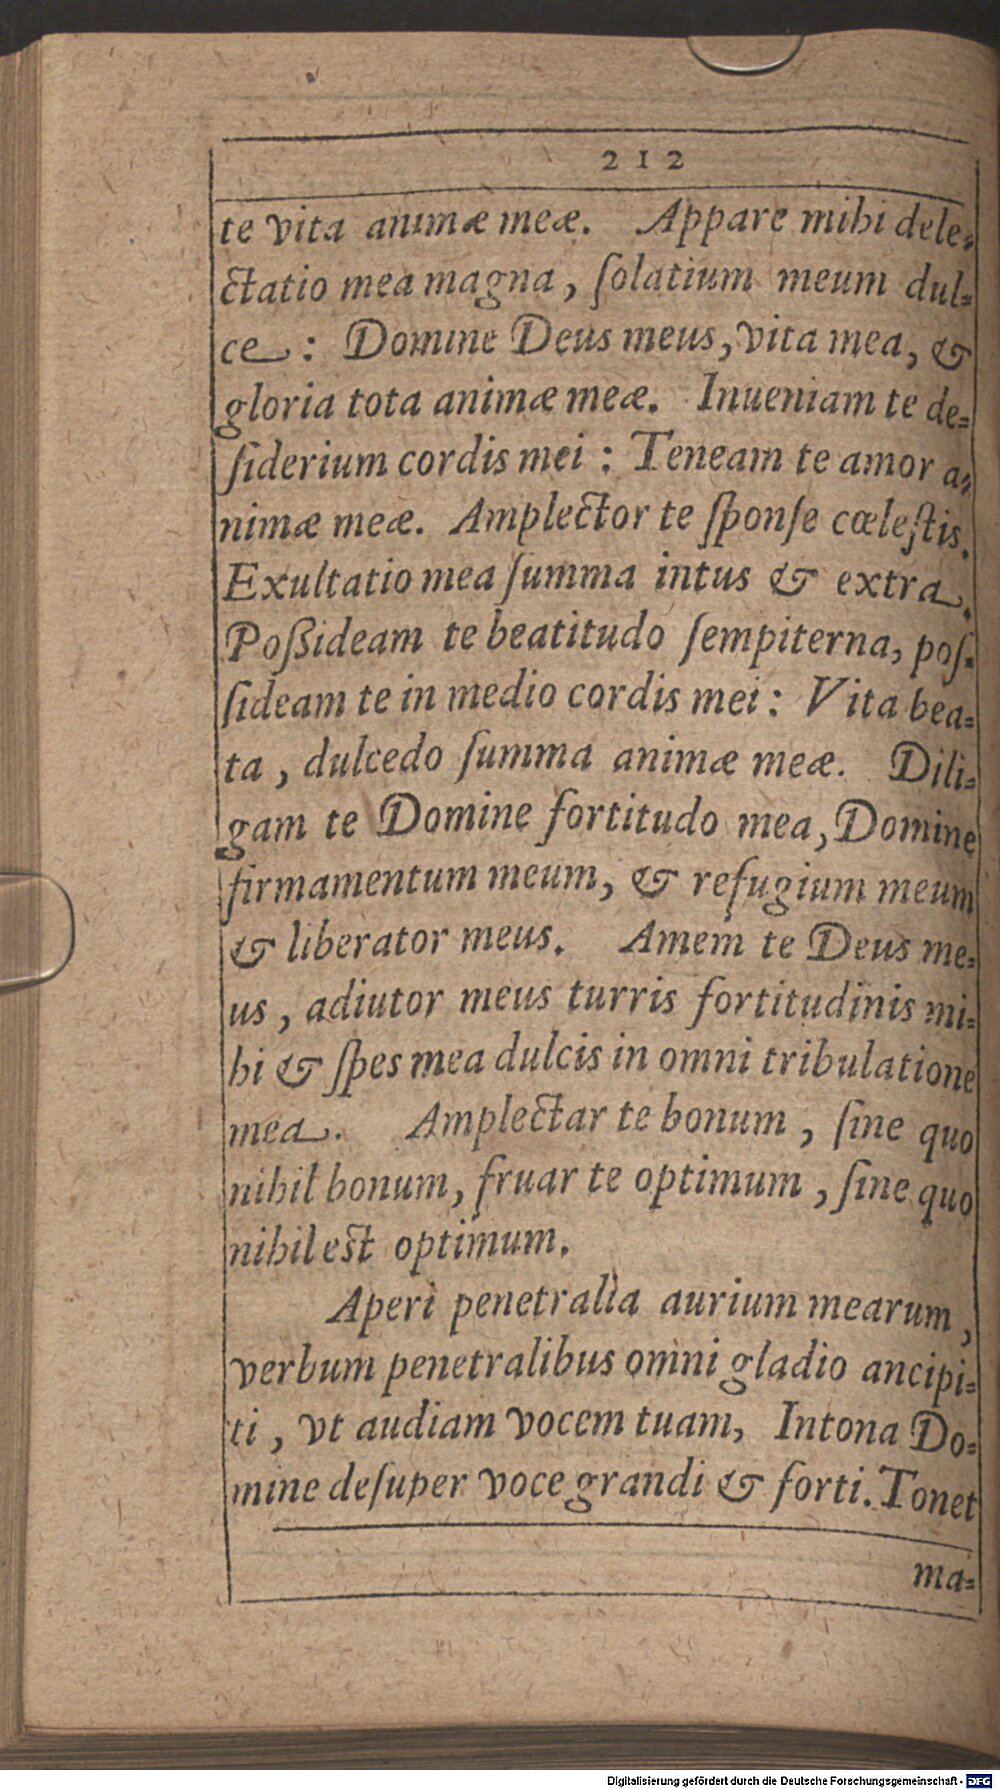 212
te vita animæ meæ. Appare mihi dele-
ctatio mea magna, ſolatium meum dul-
ce : Domine Deus meus, vita mea, &
gloria tota animæ meæ. Inueniam te de-
ſiderium cordis mei : Teneam te amor a-
nimæ meæ. Amplector te ſponſe cœleſtis.
Exultatio mea ſumma intus & extra.
Poßideam te beatitudo ſempiterna, poſ-
ſideam te in medio cordis mei : Vita bea-
ta, dulcedo ſumma animæ meæ. Dili-
gam te Domine fortitudo mea, Domine
firmamentum meum, & refugium meum
& liberator meus. Amem te Deus me-
us, adiutor meus turris fortitudinis mi-
hi & ſpes mea dulcis in omni tribulatione
mea. Amplectar te bonum, ſine quo
nihil bonum, fruar te optimum, ſine quo
nihil est optimum.
Aperi penetralia aurium mearum,
verbum penetralibus omni gladio ancipi-
ti, vt audiam vocem tuam, Intona Do-
mine deſuper voce grandi & forti. Tonet
ma-
Digitalisierung gefördert durch die Deutsche Forschungsgemeinschaft - DFG